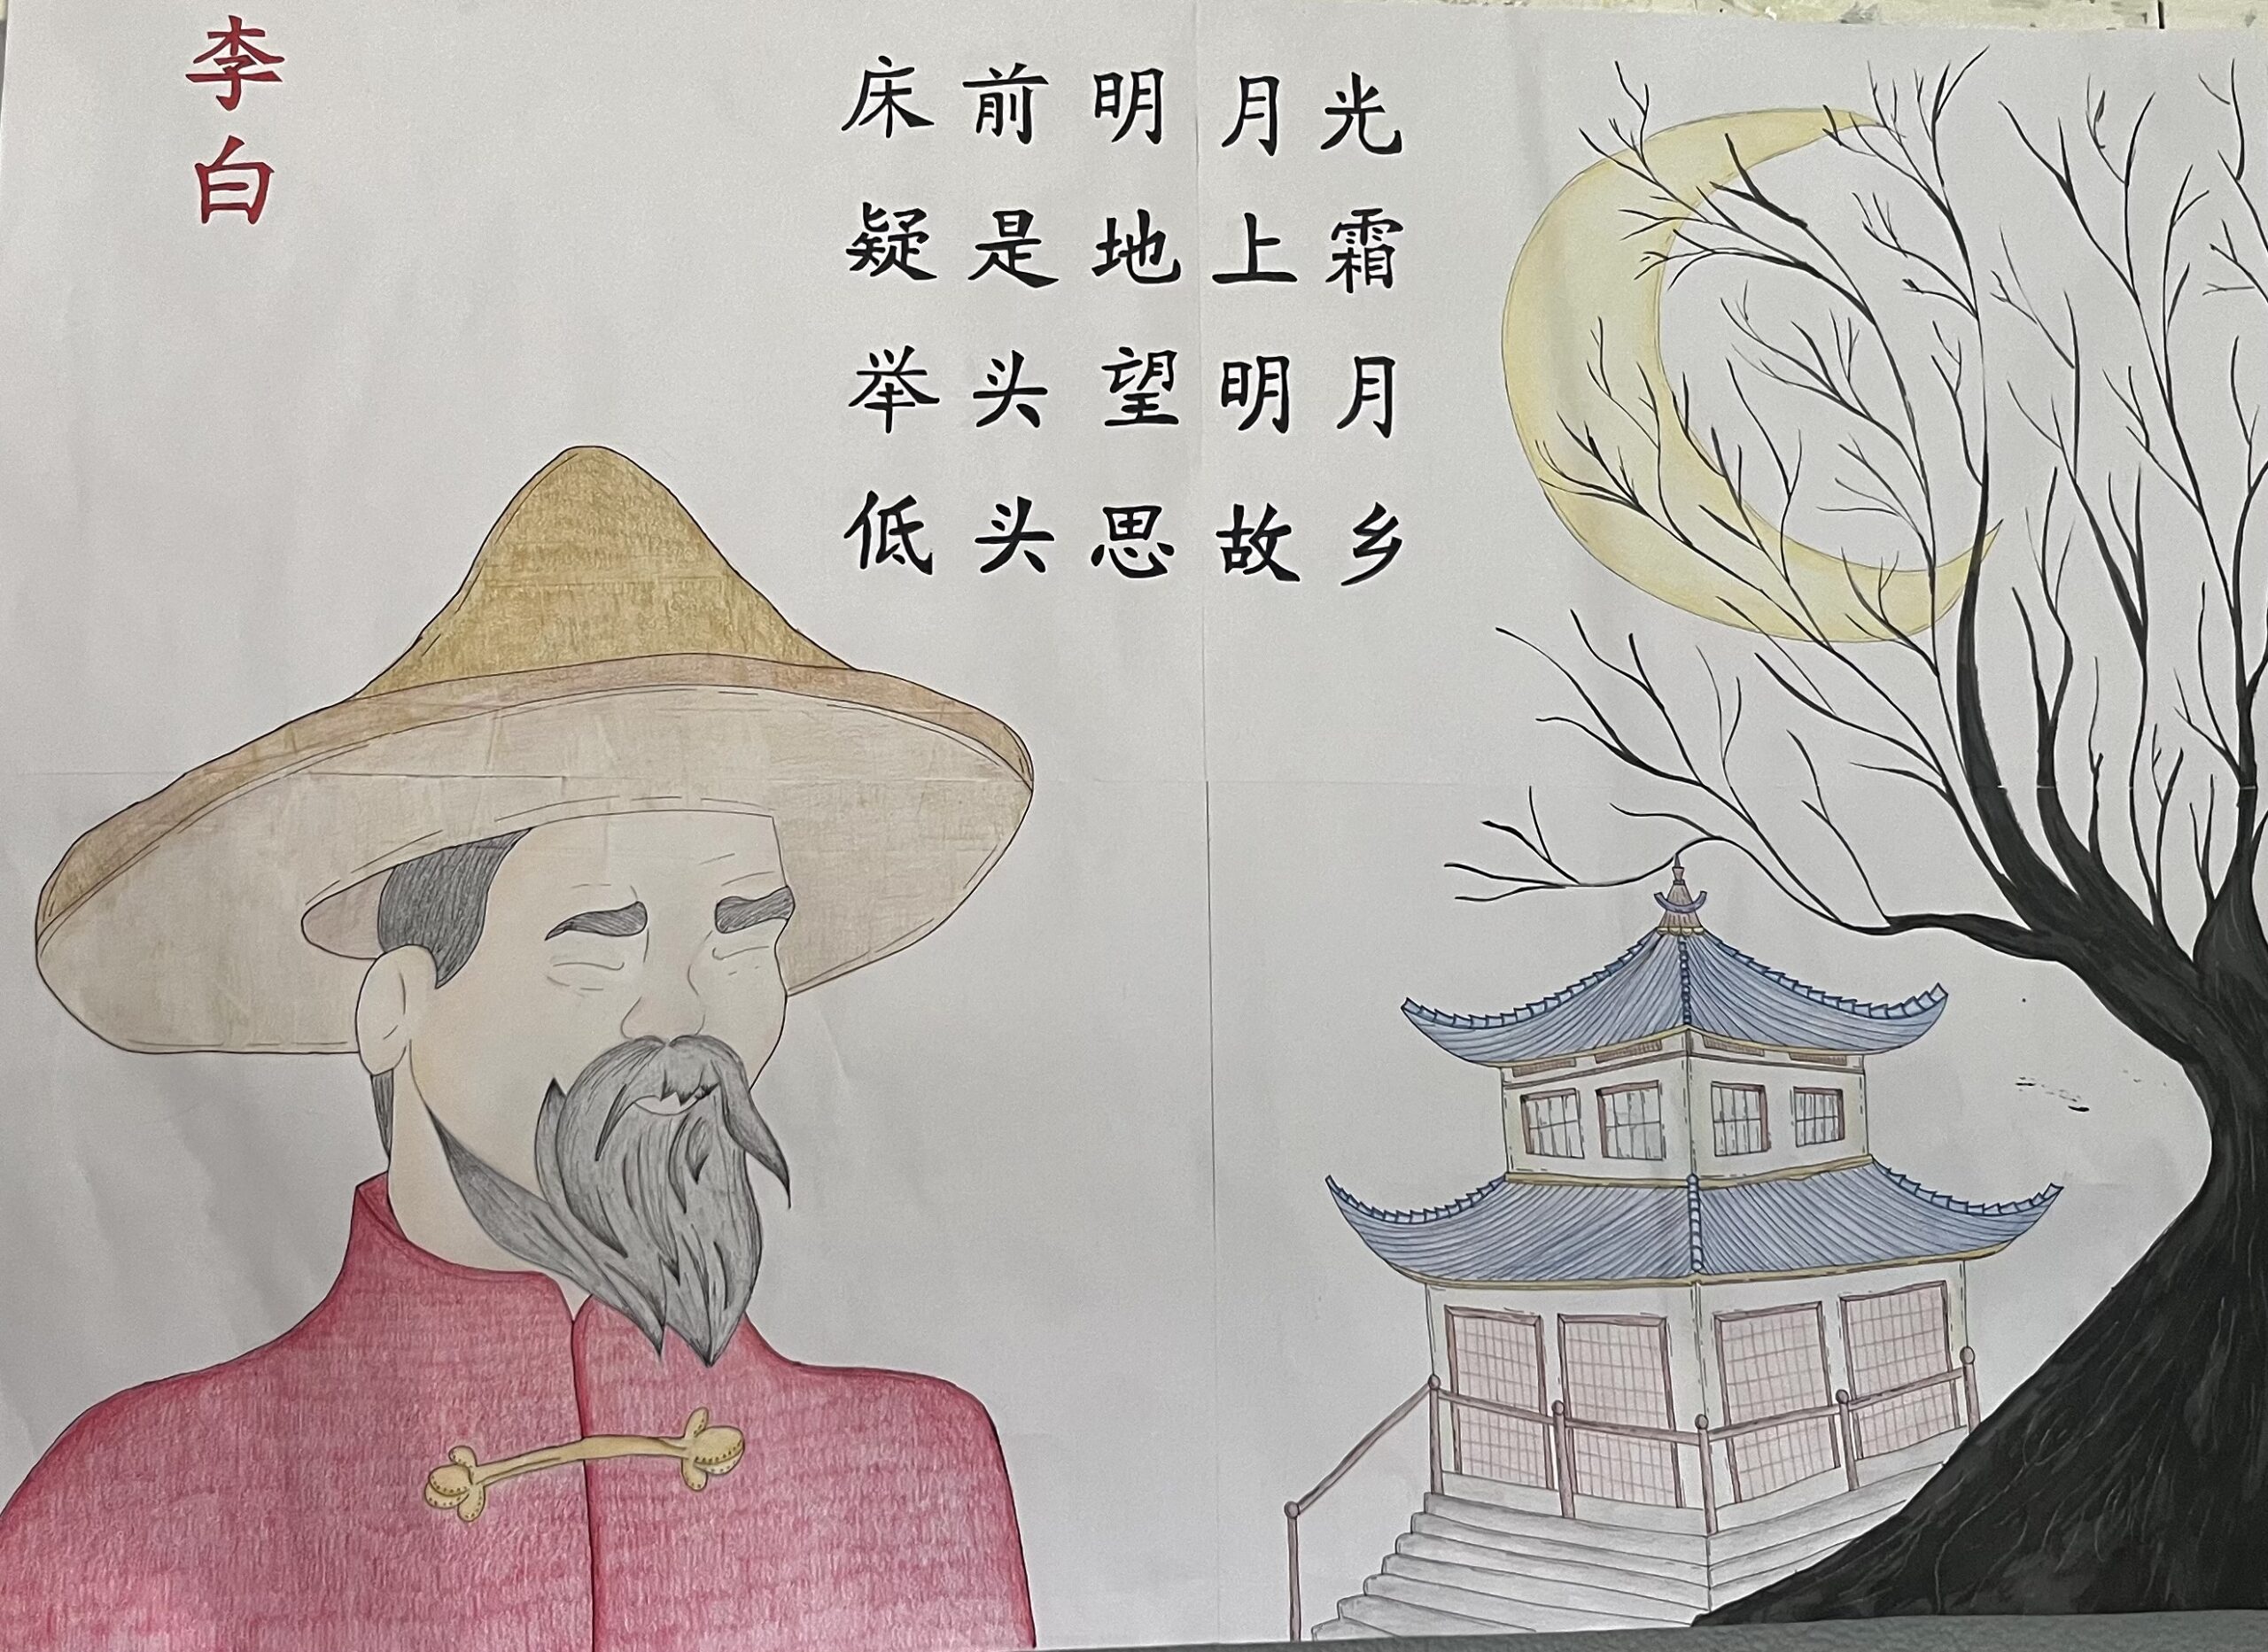 李白
床前明月光
疑是地上霜
举头望明月
低头思故乡